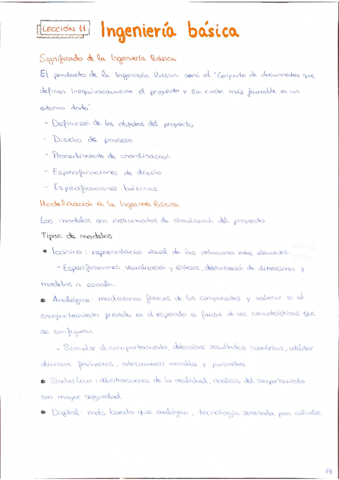 LECCIÓN 11 Ingeniería básica
Significado de la Ingeniería Básica
El producto de la Ingeniería Básica será el "Conjunto de documentos que
definen inequívocamente el proyecto y su coste más favorable en un
entorno dado".
- Definición de los objetos del proyecto
- Diseño de proceso
- Procedimiento de coordinación
- Especificaciones de diseño
- Especificaciones básicas
Modelización en la Ingeniería Básica
Los modelos son instrumentos de simulación del proyecto
Tipos de modelos
• Icónico: representación visual de las relaciones entre elementos.
- Especificaciones, visualización y síntesis, determinación de dimensiones y
modelos a escala.
• Analógico: mediciones físicas de los componentes y valorar si el
comportamiento previsto es el esperado a través de las características que
se configuran.
- Simular el comportamiento, determinar resultados numéricos, utilizar
diversos fenómenos, interaccionar variables y parámetros
• Simbólico: abstracciones de la realidad, análisis del comportamiento
con mayor seguridad.
• Digital: más barato que analógico, tecnología avanzada para cálculos.